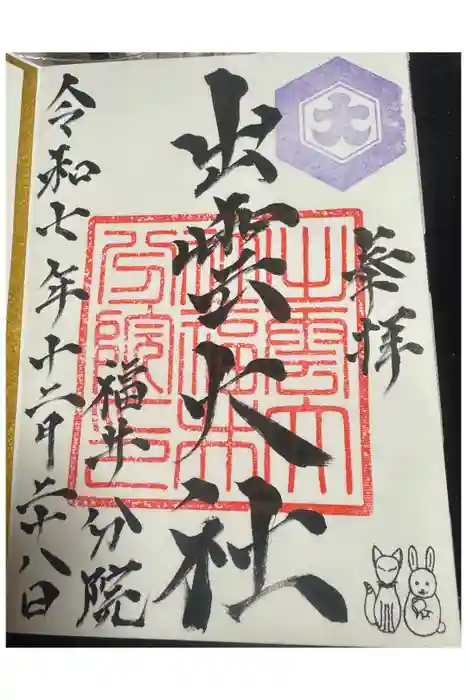 奉拝
出雲大社
福井分院
令和七年十二月二十八日
大
出雲大
社福井
分院印